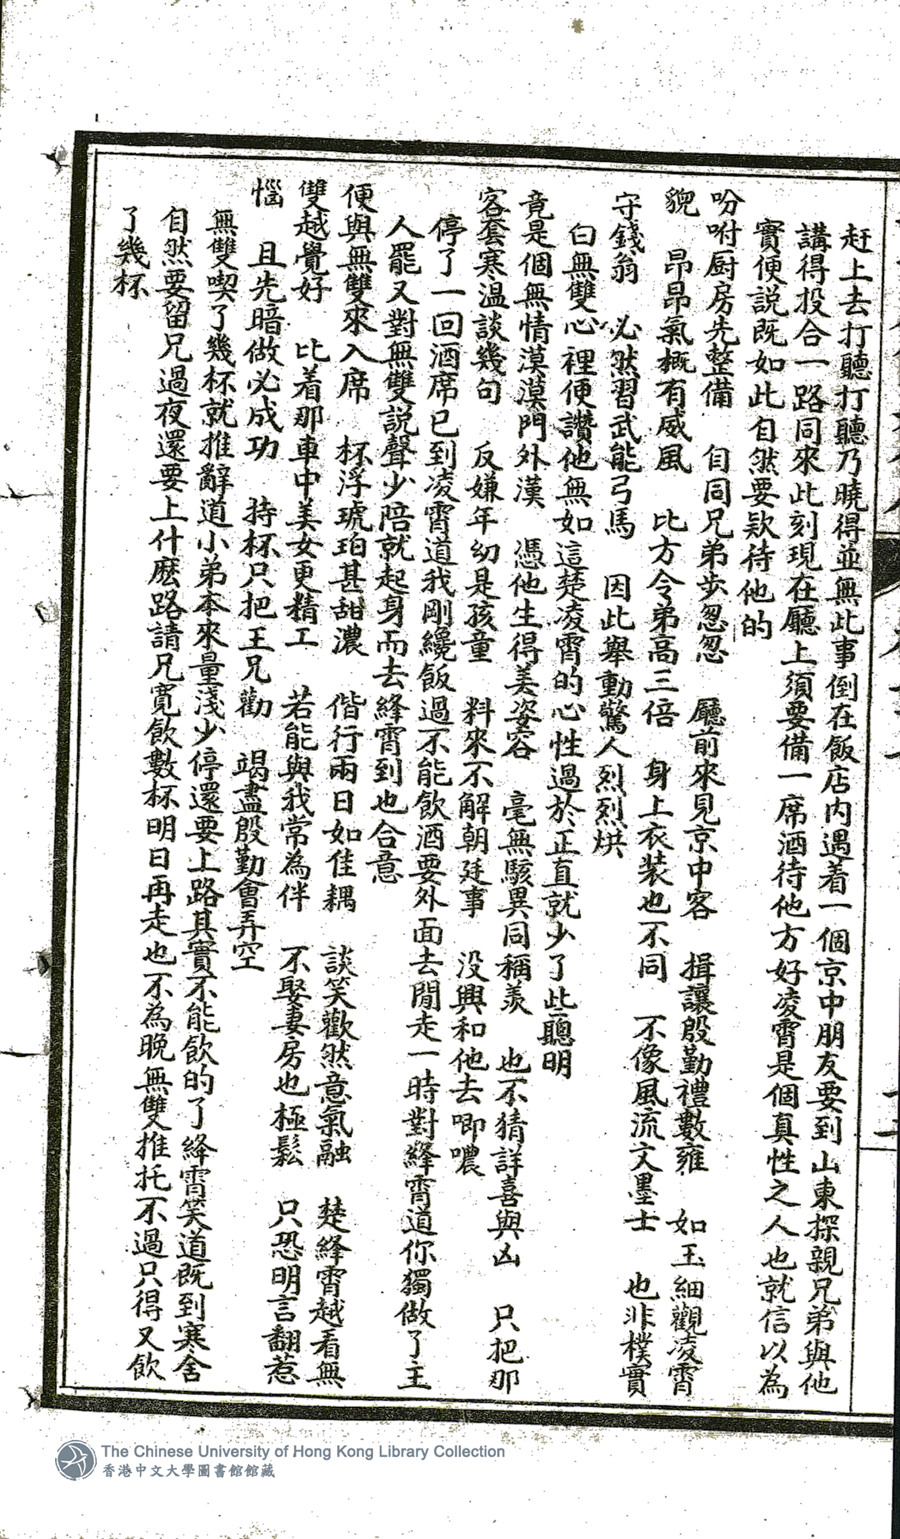 赶上去打聽打聽乃曉得並無此事倒在飯店内遇着一個京中朋友要到山東探親兄弟與他
講得投合一路同來此刻現在廳上須要備一席酒待他方好凌霄是個真性之人也就信以為
實便説既如此自然要欵待他的
吩咐厨房先整備 自同兄弟步忽忽 廳前來見京中客 揖讓殷勤禮數雍 如玉細觀凌霄
貌 昂昂氣概有威風 比方令弟高三倍 身上衣装也不同 不像風流文墨士 也非樸實
守錢翁 必然習武能弓馬 因此舉動驚人烈烈烘
白無雙心裡便讚他無如這楚凌霄的心性過於正直就少了此聰明
竟是個無情漠漠門外漢 憑他生得美姿容 毫無駭異同稱羡 也不猜詳喜與凶 只把那
客套寒温談幾句 反嫌年幼是孩童 料來不解朝廷事 没興和他去唧噥
停了一回酒席已到凌霄道我剛纔飯過不能飲酒要外面去閒走一時對絳霄道你獨做了主
人罷又對無雙説聲少陪就起身而去絳霄到也合意
便與無雙來入席 杯浮琥珀甚甜濃 偕行兩日如佳耦 談笑歡然意氣融 楚絳霄越看無
雙越覺好 比着那車中美女更精工 若能與我常為伴 不娶妻房也極鬆 只恐明言翻惹
惱 且先暗做必成功 持杯只把王兄勸 竭盡殷勤會弄空
無雙喫了幾杯就推辭道小弟本來量淺少停還要上路其實不能飲的了絳霄笑道既到寒舍
自然要留兄過夜還要上什麽路請兄寬飲數杯明日再走也不為晚無雙推托不過只得又飲
了幾杯
The Chinese University of Hong Kong Library Collection
香港中文大學圖書館館藏